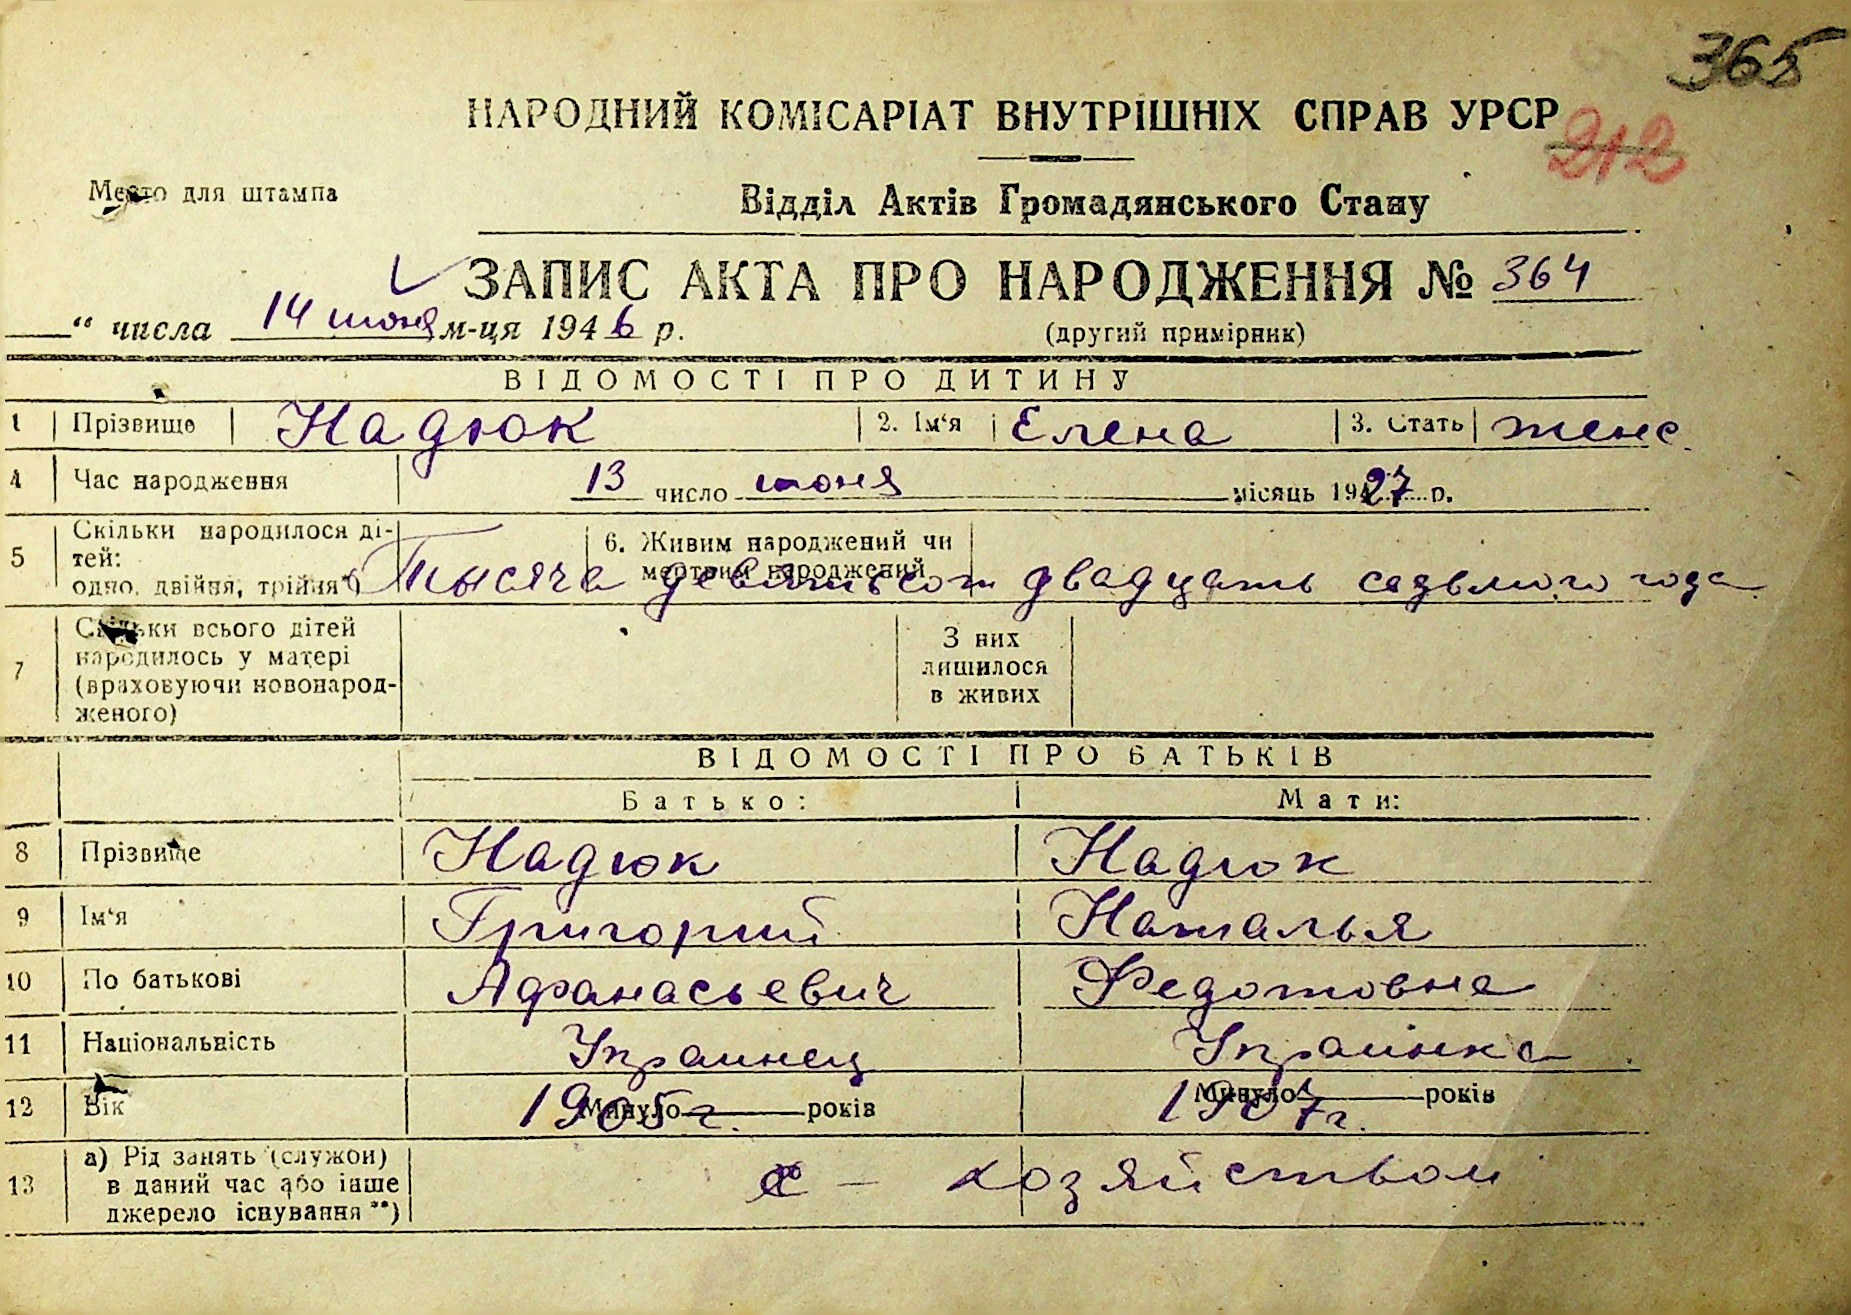 365
НАРОДНИЙ КОМІСАРІАТ ВНУТРІШНІХ СПРАВ УРСР
212
Место для штампа
Відділ Актів Громадянського Стану
ЗАПИС АКТА ПРО НАРОДЖЕННЯ № 364
“ числа 14 июня м-ця 1946 р.
(другий примірник)
ВІДОМОСТІ ПРО ДИТИНУ
1 Прізвище Надюк 2. Ім‘я Елена 3. Стать женс
4 Час народження 13 число июня місяць 1927 р.
5 Скільки народилося ді-
тей:
одно, двійня, трійня*)
6. Живим народжений чи
мертвим народжений
Тысяча девятьсот двадцать седьмого года
7 Скільки всього дітей
народилось у матері
(враховуючи новонарод-
женого)
З них
лишилося
в живих
ВІДОМОСТІ ПРО БАТЬКІВ
Батько: Мати:
8 Прізвище Надюк Надюк
9 Ім‘я Григорий Наталья
10 По батькові Афанасьевич Федотовна
11 Національність Украинец Украинка
12 Вік Минуло 1905 г. років Минуло 1907 г. років
13 а) Рід занять (служби)
в даний час або інше
джерело існування **)
с – хозяйством